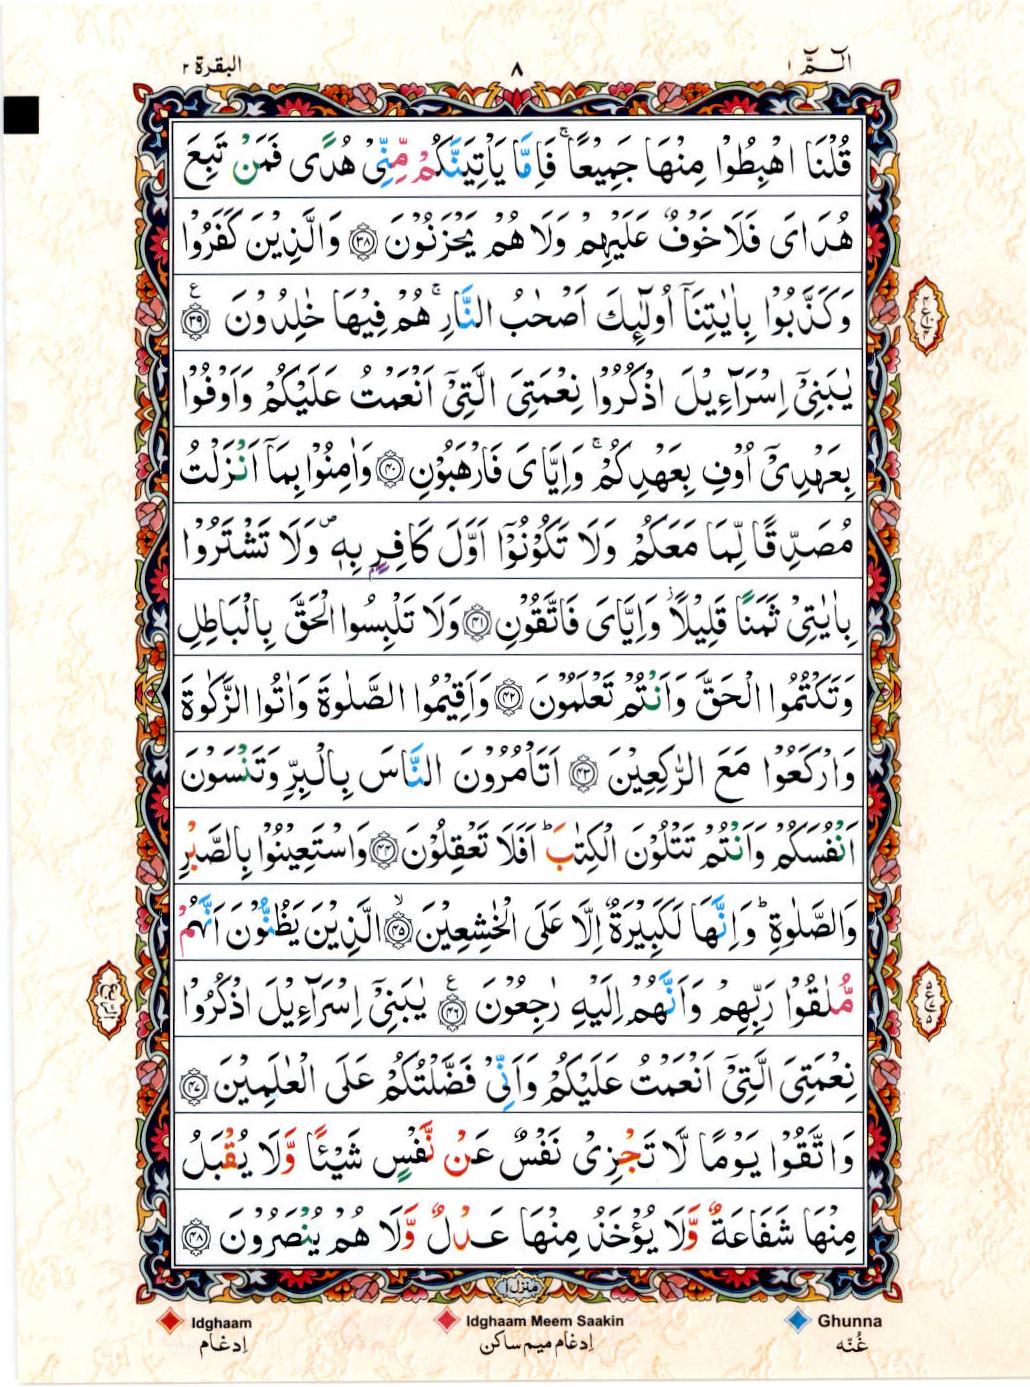 الٓـمّٓ ١ ٨ البقرة ٢
قُلْنَا اهْبِطُوْا مِنْهَا جَمِيْعًا ۚ فَاِمَّا يَاْتِيَنَّكُمْ مِّنِّيْ هُدًى فَمَنْ تَبِعَ
هُدَايَ فَلَا خَوْفٌ عَلَيْهِمْ وَلَا هُمْ يَحْزَنُوْنَ ﴿٣٨﴾ وَالَّذِيْنَ كَفَرُوْا
وَكَذَّبُوْا بِاٰيٰتِنَآ اُولٰٓئِكَ اَصْحٰبُ النَّارِ ۚ هُمْ فِيْهَا خٰلِدُوْنَ ﴿٣٩﴾ ع
يٰبَنِيْٓ اِسْرَآءِيْلَ اذْكُرُوْا نِعْمَتِيَ الَّتِيْٓ اَنْعَمْتُ عَلَيْكُمْ وَاَوْفُوْا
بِعَهْدِيْٓ اُوْفِ بِعَهْدِكُمْ ۚ وَاِيَّايَ فَارْهَبُوْنِ ﴿٤٠﴾ وَاٰمِنُوْا بِمَآ اَنْزَلْتُ
مُصَدِّقًا لِّمَا مَعَكُمْ وَلَا تَكُوْنُوْٓا اَوَّلَ كَافِرٍۭ بِهٖ ۖ وَلَا تَشْتَرُوْا
بِاٰيٰتِيْ ثَمَنًا قَلِيْلًا ۙ وَاِيَّايَ فَاتَّقُوْنِ ﴿٤١﴾ وَلَا تَلْبِسُوا الْحَقَّ بِالْبَاطِلِ
وَتَكْتُمُوا الْحَقَّ وَاَنْتُمْ تَعْلَمُوْنَ ﴿٤٢﴾ وَاَقِيْمُوا الصَّلٰوةَ وَاٰتُوا الزَّكٰوةَ
وَارْكَعُوْا مَعَ الرّٰكِعِيْنَ ﴿٤٣﴾ اَتَاْمُرُوْنَ النَّاسَ بِالْبِرِّ وَتَنْسَوْنَ
اَنْفُسَكُمْ وَاَنْتُمْ تَتْلُوْنَ الْكِتٰبَ ؕ اَفَلَا تَعْقِلُوْنَ ﴿٤٤﴾ وَاسْتَعِيْنُوْا بِالصَّبْرِ
وَالصَّلٰوةِ ؕ وَاِنَّهَا لَكَبِيْرَةٌ اِلَّا عَلَى الْخٰشِعِيْنَ ۙ﴿٤٥﴾ الَّذِيْنَ يَظُنُّوْنَ اَنَّهُمْ
مُّلٰقُوْا رَبِّهِمْ وَاَنَّهُمْ اِلَيْهِ رٰجِعُوْنَ ﴿٤٦﴾ ع يٰبَنِيْٓ اِسْرَآءِيْلَ اذْكُرُوْا
نِعْمَتِيَ الَّتِيْٓ اَنْعَمْتُ عَلَيْكُمْ وَاَنِّيْ فَضَّلْتُكُمْ عَلَى الْعٰلَمِيْنَ ﴿٤٧﴾
وَاتَّقُوْا يَوْمًا لَّا تَجْزِيْ نَفْسٌ عَنْ نَّفْسٍ شَيْـًٔا وَّلَا يُقْبَلُ
مِنْهَا شَفَاعَةٌ وَّلَا يُؤْخَذُ مِنْهَا عَدْلٌ وَّلَا هُمْ يُنْصَرُوْنَ ﴿٤٨﴾
منزل ١
Idghaam Idghaam Meem Saakin Ghunna
اِدغَام اِدغَام میم ساکن غُنّه